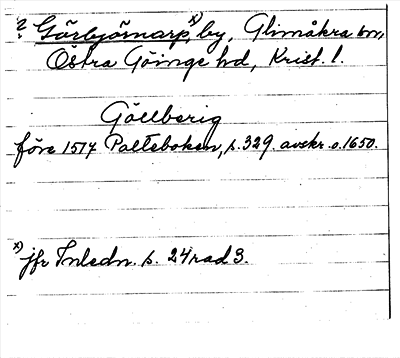 ? Görbjörnarp, x) by, Glimåkra sn,
Östra Göinge hd, Krist. l.
Göllberig
före 1514 Palteboken, s. 329. avskr. o. 1650.
x) jfr Inledn. s. 24 rad 3.